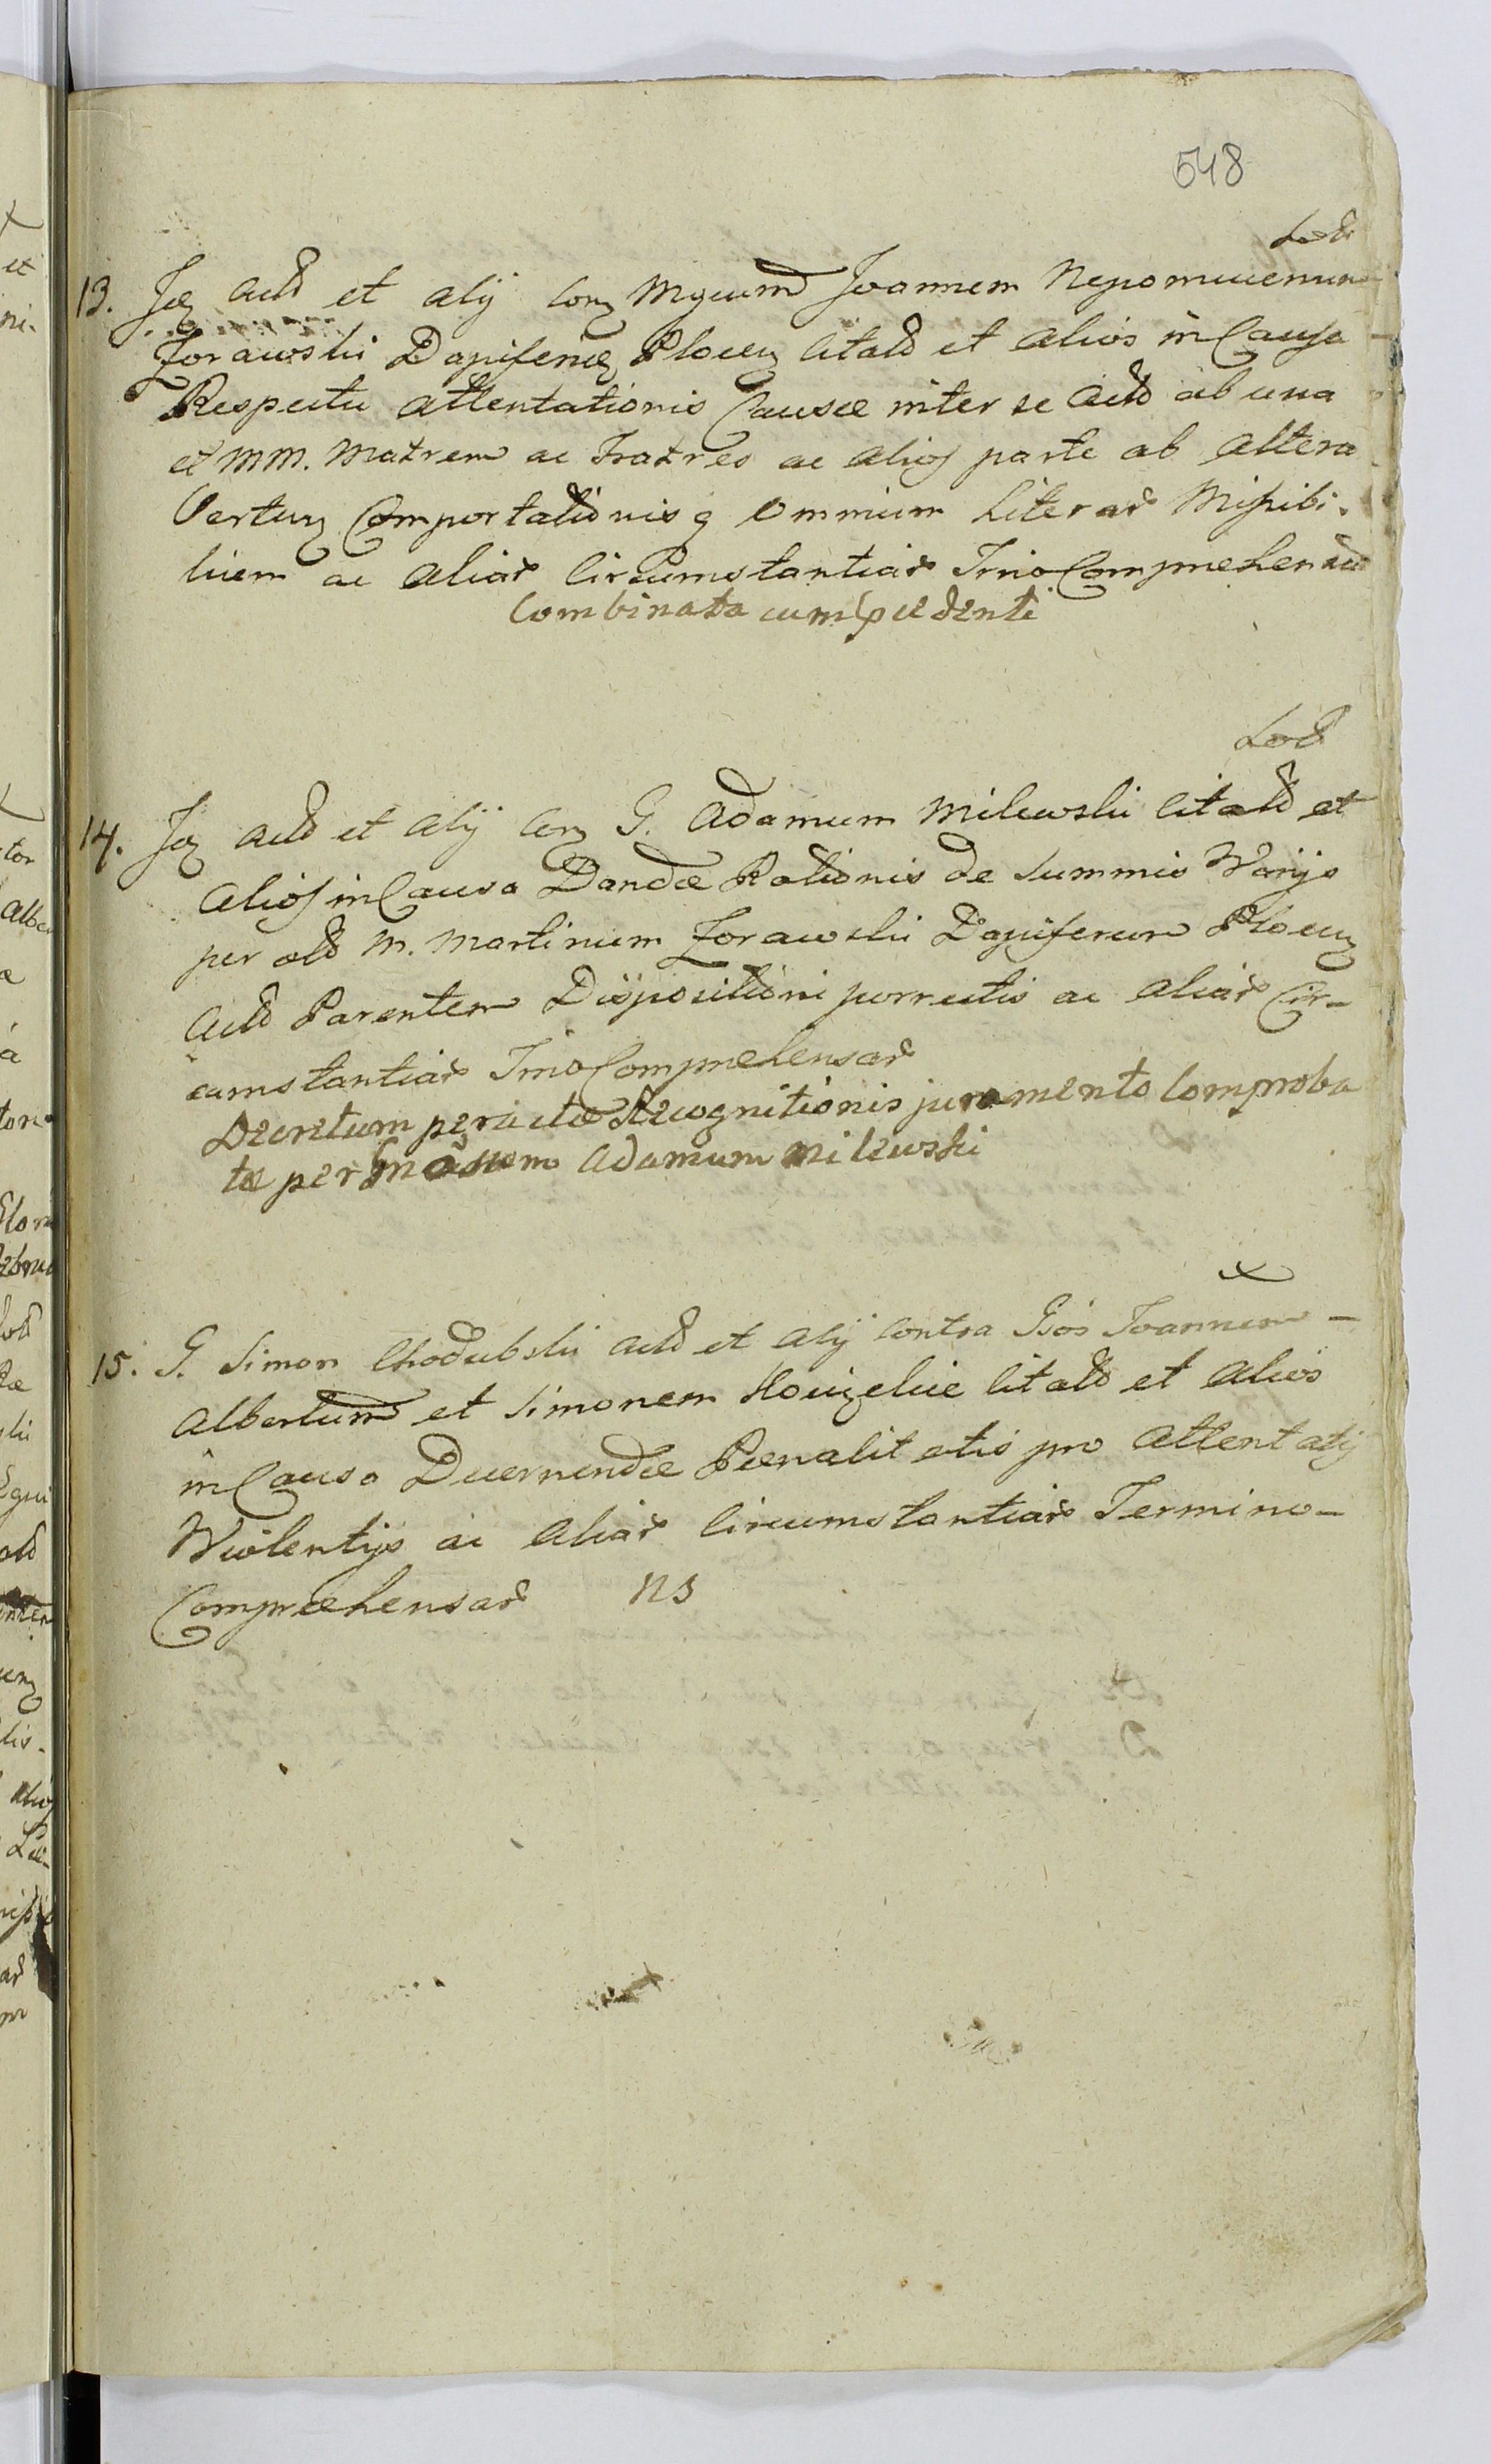 548
13. Jz Actd et Alij Conz Mgcum Joannem Nepomucenum
Zorawski Dapiferuz Ploceuz Citatd et Alios in Causa
Respectu Attentationis Causæ inter se Actd ab una
et MM. Matrem ac Fratres ac Alios parte ab Altera
Vertenz Comportationisq Omnium Literar Missibi-
lium ac Aliar Circumstantiar Tmo Compræhensar
Combinata cum præcedenti
14. Jz Actd et Alij Conz G. Adamum Milewski Citatd et
Alios in Causa Dandæ Rationis de Summis Varijs
per old M. Martinum Zorawski Dapiferum Ploceuz
Actd Parentem Dispositioni porrectis ac Aliar Cir-
cumstantiar Tmo Compræhensar
Decretum peractæ Recognitionis juramento Comproba
tæ per Adamum Milewski
15. G. Simon Chodubski Actd et Alij Contra Gsos Joannem -
Albertum et Simonem Citatd et Alios
in Causa Decernendæ Pænalitatis pro Attentatij
Wiolentijs ac Aliar Circumstantiar Termino -
Compræhensar NS